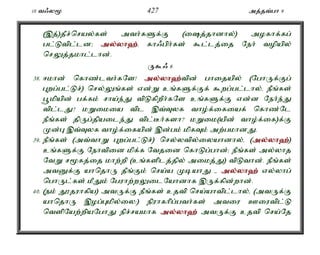 10 வஃலமூ 427 அத்தவ்பா 9
(இத்)தீச்செயல்கள் அவர்களுக்கு (ஷைத்தானால்) அழகாக்கப்
பட்டுவிட்டன; அல்லாஹ், காஃபிர்கள் கூட்டத்தை நேர் வழியில்
செலுத்தமாட்டான்.
ருகூஃ 6
38. ஈமான் கொண்டவர்களே! அல்லாஹ்வின் பாதையில் (போருக்குப்
புறப்பட்டுச்) செல்லுங்கள் என்று உங்களுக்குக் கூறப்பட்டால், நீங்கள்
பூமியின் பக்கம் சாய்ந்து விடுகிறீர்களே உங்களுக்கு என்ன நேர்ந்து
விட்டது? மறுமையை விட இவ்வுலக வாழ்க்கையைக் கொண்டே
நீங்கள் திருப்தியடைந்து விட்டீர்களா? மறுமை(யின் வாழ்க்கை)க்கு
முன்பு இவ்வுலக வாழ்க்கையின் இன்பம் மிகவும் அற்பமானது.
39. நீங்கள் (அவ்வாறு புறப்பட்டுச்) செல்லவில்லையானால், (அல்லாஹ்)
உங்களுக்கு நோவினை மிக்க வேதனை கொடுப்பான்; நீங்கள் அல்லாத
வேறு சமூகத்தை மாற்றி (உங்களிடத்தில் அமைத்து) விடுவான். நீங்கள்
அவனுக்கு யாதொரு தீங்கும் செய்ய முடியாது - அல்லாஹ் எல்லாப்
பொருட்கள் மீதும் பேராற்றலுடையோனாக இருக்கின்றான்.
40. (நம் தூதராகிய) அவருக்கு நீங்கள் உதவி செய்யாவிட்டால், (அவருக்கு
யாதொரு இழப்புமில்லை:) நிராகரிப்பவர்கள் அவரை ஊரைவிட்டு
வெளியேற்றியபோது நிச்சயமாக அல்லாஹ் அவருக்கு உதவி செய்தே